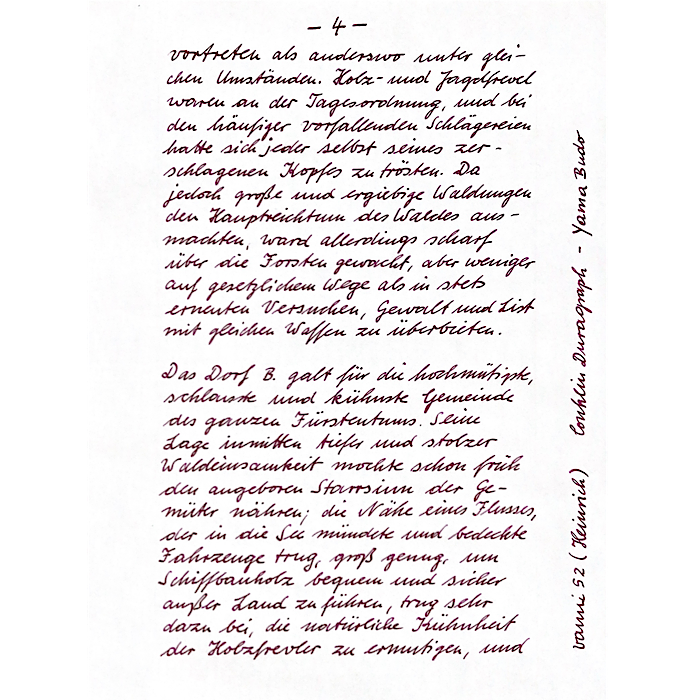 – 4 –
vortreten als anderswo unter glei-
chen Umständen. Holz- und Jagdfrevel
waren an der Tagesordnung, und bei
den häufiger vorfallenden Schlägereien
hatte sich jeder selbst seines zer-
schlagenen Kopfes zu trösten. Da
jedoch große und ergiebige Waldungen
den Hauptreichtum des Waldes aus-
machten, ward allerdings scharf
über die Forsten gewacht, aber weniger
auf gesetzlichem Wege als in stets
erneuten Versuchen, Gewalt und List
mit gleichen Waffen zu überbieten.
Das Dorf B. galt für die hochmütigste,
schlauste und kühnste Gemeinde
des ganzen Fürstentums. Seine
Lage inmitten tiefer und stolzer
Waldeinsamkeit mochte schon früh
den angeboren Starrsinn der Ge-
müter nähren; die Nähe eines Flusses,
der in die See mündete und bedeckte
Fahrzeuge trug, groß genug, um
Schiffbauholz bequem und sicher
außer Land zu führen, trug sehr
dazu bei, die natürliche Kühnheit
der Holzfrevler zu ermutigen, und
vanni52 (Heinrich) Conklin Duragraph – Yama Budo